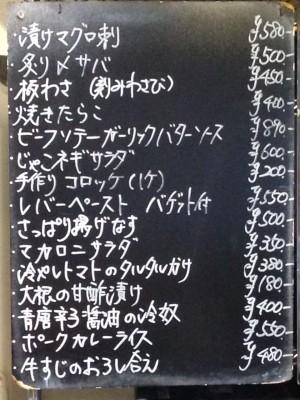 漬けマグロ刺 ¥580-
炙り〆サバ ¥500-
板わさ (刻みわさび) ¥450-
焼きたらこ ¥400-
ビーフソテーガーリックバターソース ¥890-
じゃこネギサラダ ¥600-
手作りコロッケ(1ケ) ¥200-
レバーペースト バゲット付 ¥550-
さっぱり揚げなす ¥500-
マカロニサラダ ¥350-
冷やしトマトのタルタルがけ ¥380-
大根の甘酢漬け ¥180-
青唐辛子醤油の冷奴 ¥400-
ポークカレーライス ¥550-
牛すじのおろし合え ¥480-